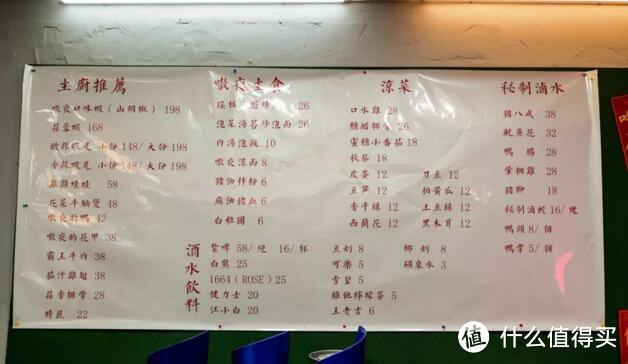 主廚推薦
嗷夜口味蝦（山胡椒）198
蒜蓉蝦 168
酸辣蝦尾 小份148/大份 198
香辣蝦尾 小份148/大份 198
雞雞娃娃 58
花菜牛胸煲 48
嗷夜的鴨 42
嗷夜的花甲 38
霸王牛肉 38
茄汁雞翅 38
蒜香排骨 28
時蔬 22
嗷夜主食
26
泡菜海苔炒泡面 26
肉湯泡飯 10
嗷夜涼面 8
豬油拌粉 6
麻油豬血 6
白粒圓 6
涼菜
口水雞 28
糖醋排骨 26
蜜糖小番茄 18
秋葵 18
皮蛋 12
刀豆 12
豆筍 12
拍黃瓜 12
香干絲 12
土豆絲 12
西蘭花 12
黑木耳 12
秘制滷水
豬八戒 38
魷魚花 32
鴨腸 28
掌翅雞 28
豬腳 18
秘制滷蛇 16/塊
鴨頭 8/個
鴨掌 5/個
酒水飲料
紮啤 58/炮 16/杯
白熊 25
1664 (ROSE) 25
健力士 20
江小白 20
豆奶 8
椰奶 8
可樂 5
礦泉水 3
雪碧 5
維他檸檬茶 5
王老吉 6
值 什么值得买